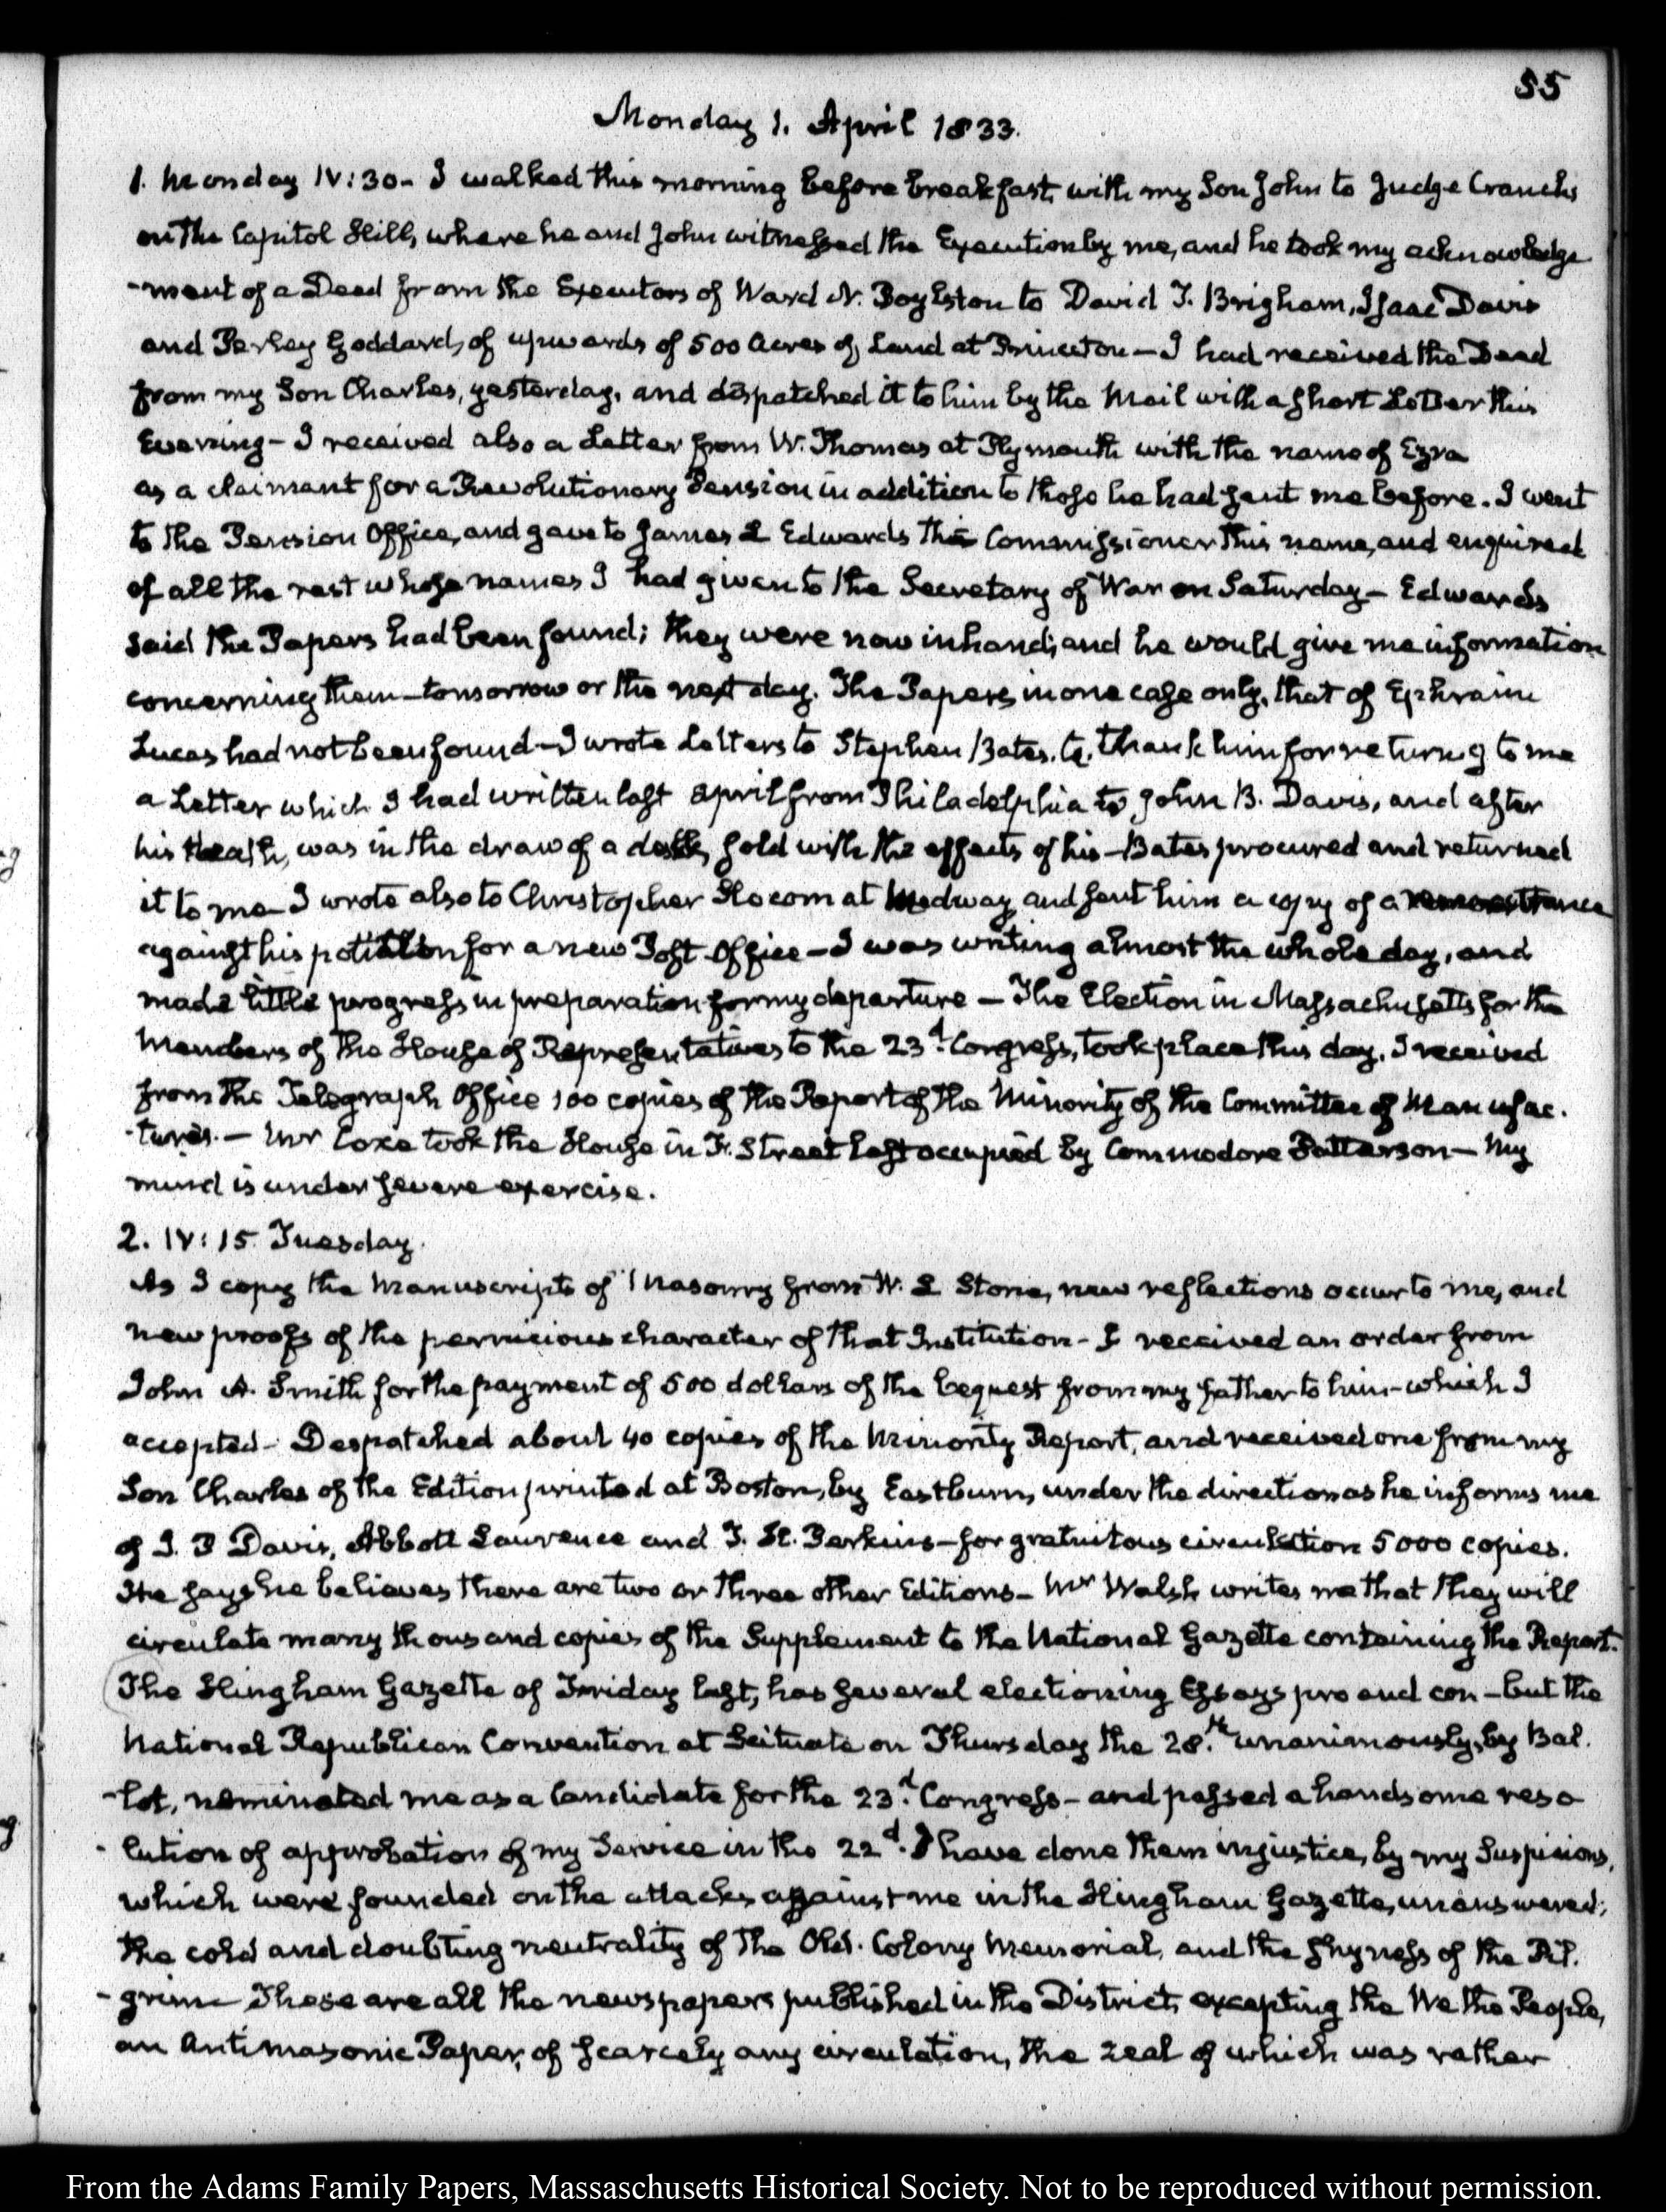 55
Monday 1. April 1833.
1. Monday IV:30 - I walked this morning before breakfast with my Son John to Judge Cranch's
on the Capitol Hill, where he and John witnessed the Execution by me, and he took my acknowledge
-ment of a Deed from the Executors of Ward N. Boylston to David T. Brigham, Isaac Davis
and Perley Goddard, of upwards of 500 Acres of Land at Princeton — I had received the Deed
from my Son Charles, yesterday, and despatched it to him by the Mail with a short Letter this
Evening - I received also a Letter from W. Thomas at Plymouth with the name of Ezra
as a claimant for a Revolutionary Pension in addition to those he had sent me before. I went
to the Pension Office, and gave to James L Edwards the Commissioner this name, and enquired
of all the rest whose names I had given to the Secretary of War on Saturday - Edwards
said the Papers had been found; they were now in hand; and he would give me information
concerning them - tomorrow or the next day. The Papers in one case only, that of Ephraim
Lucas had not been found - I wrote Letters to Stephen Bates, to thank him for return.g to me
a Letter which I had written last April from Philadelphia to John B. Davis, and after
his death, was in the draw of a desk, sold with the effects of his - Bates procured and returned
it to me - I wrote also to Christopher Slocom at Medway and sent him a copy of a remonstrance
against his petition for a new Post-Office — I was writing almost the whole day, and
made little progress in preparation for my departure — The Election in Massachusetts for the
Members of the House of Representatives to the 23.d Congress, took place this day. I received
from the Telegraph Office 100 copies of the Report of the Minority of the Committee of Manufac.
-tures. — Mr Coxe took the House in F. Street last occupied by Commodore Patterson — My
mind is under severe exercise.
2. IV:15 Tuesday.
As I copy the Manuscripts of Masonry from W. L Stone, new reflections occur to me, and
new proofs of the pernicious character of that Institution - I received an order from
John A. Smith for the payment of 500 dollars of the bequest from my father to him - which I
accepted - Despatched about 40 copies of the Minority Report, and received one from my
Son Charles of the Edition printed at Boston, by Eastburn, under the direction as he informs me
of J. P Davis, Abbott Lawrence and T. H. Perkins - for gratuitous circulation 5000 copies.
He says he believes there are two or three other Editions - Mr Walsh writes me that they will
circulate many thousand copies of the Supplement to the National Gazette containing the Report.
The Hingham Gazette of Friday last, has several electioning Essays pro and con - but the
National Republican Convention at Scituate on Thursday the 28.th unanimously, by Bal.
-lot, nominated me as a Candidate for the 23.d Congress - and passed a handsome reso
-lution of approbation of my Service in the 22d. I have done them injustice, by my Suspicions,
which were founded on the attacks against me in the Hingham Gazette, unanswered;
the cold and doubting neutrality of The Old. Colony Memorial, and the shyness of the Pil.
-grim - These are all the newspapers published in the District, excepting the We the People,
an Antimasonic Paper, of scarcely any circulation, the zeal of which was rather
From the Adams Family Papers, Massachusetts Historical Society. Not to be reproduced without permission.